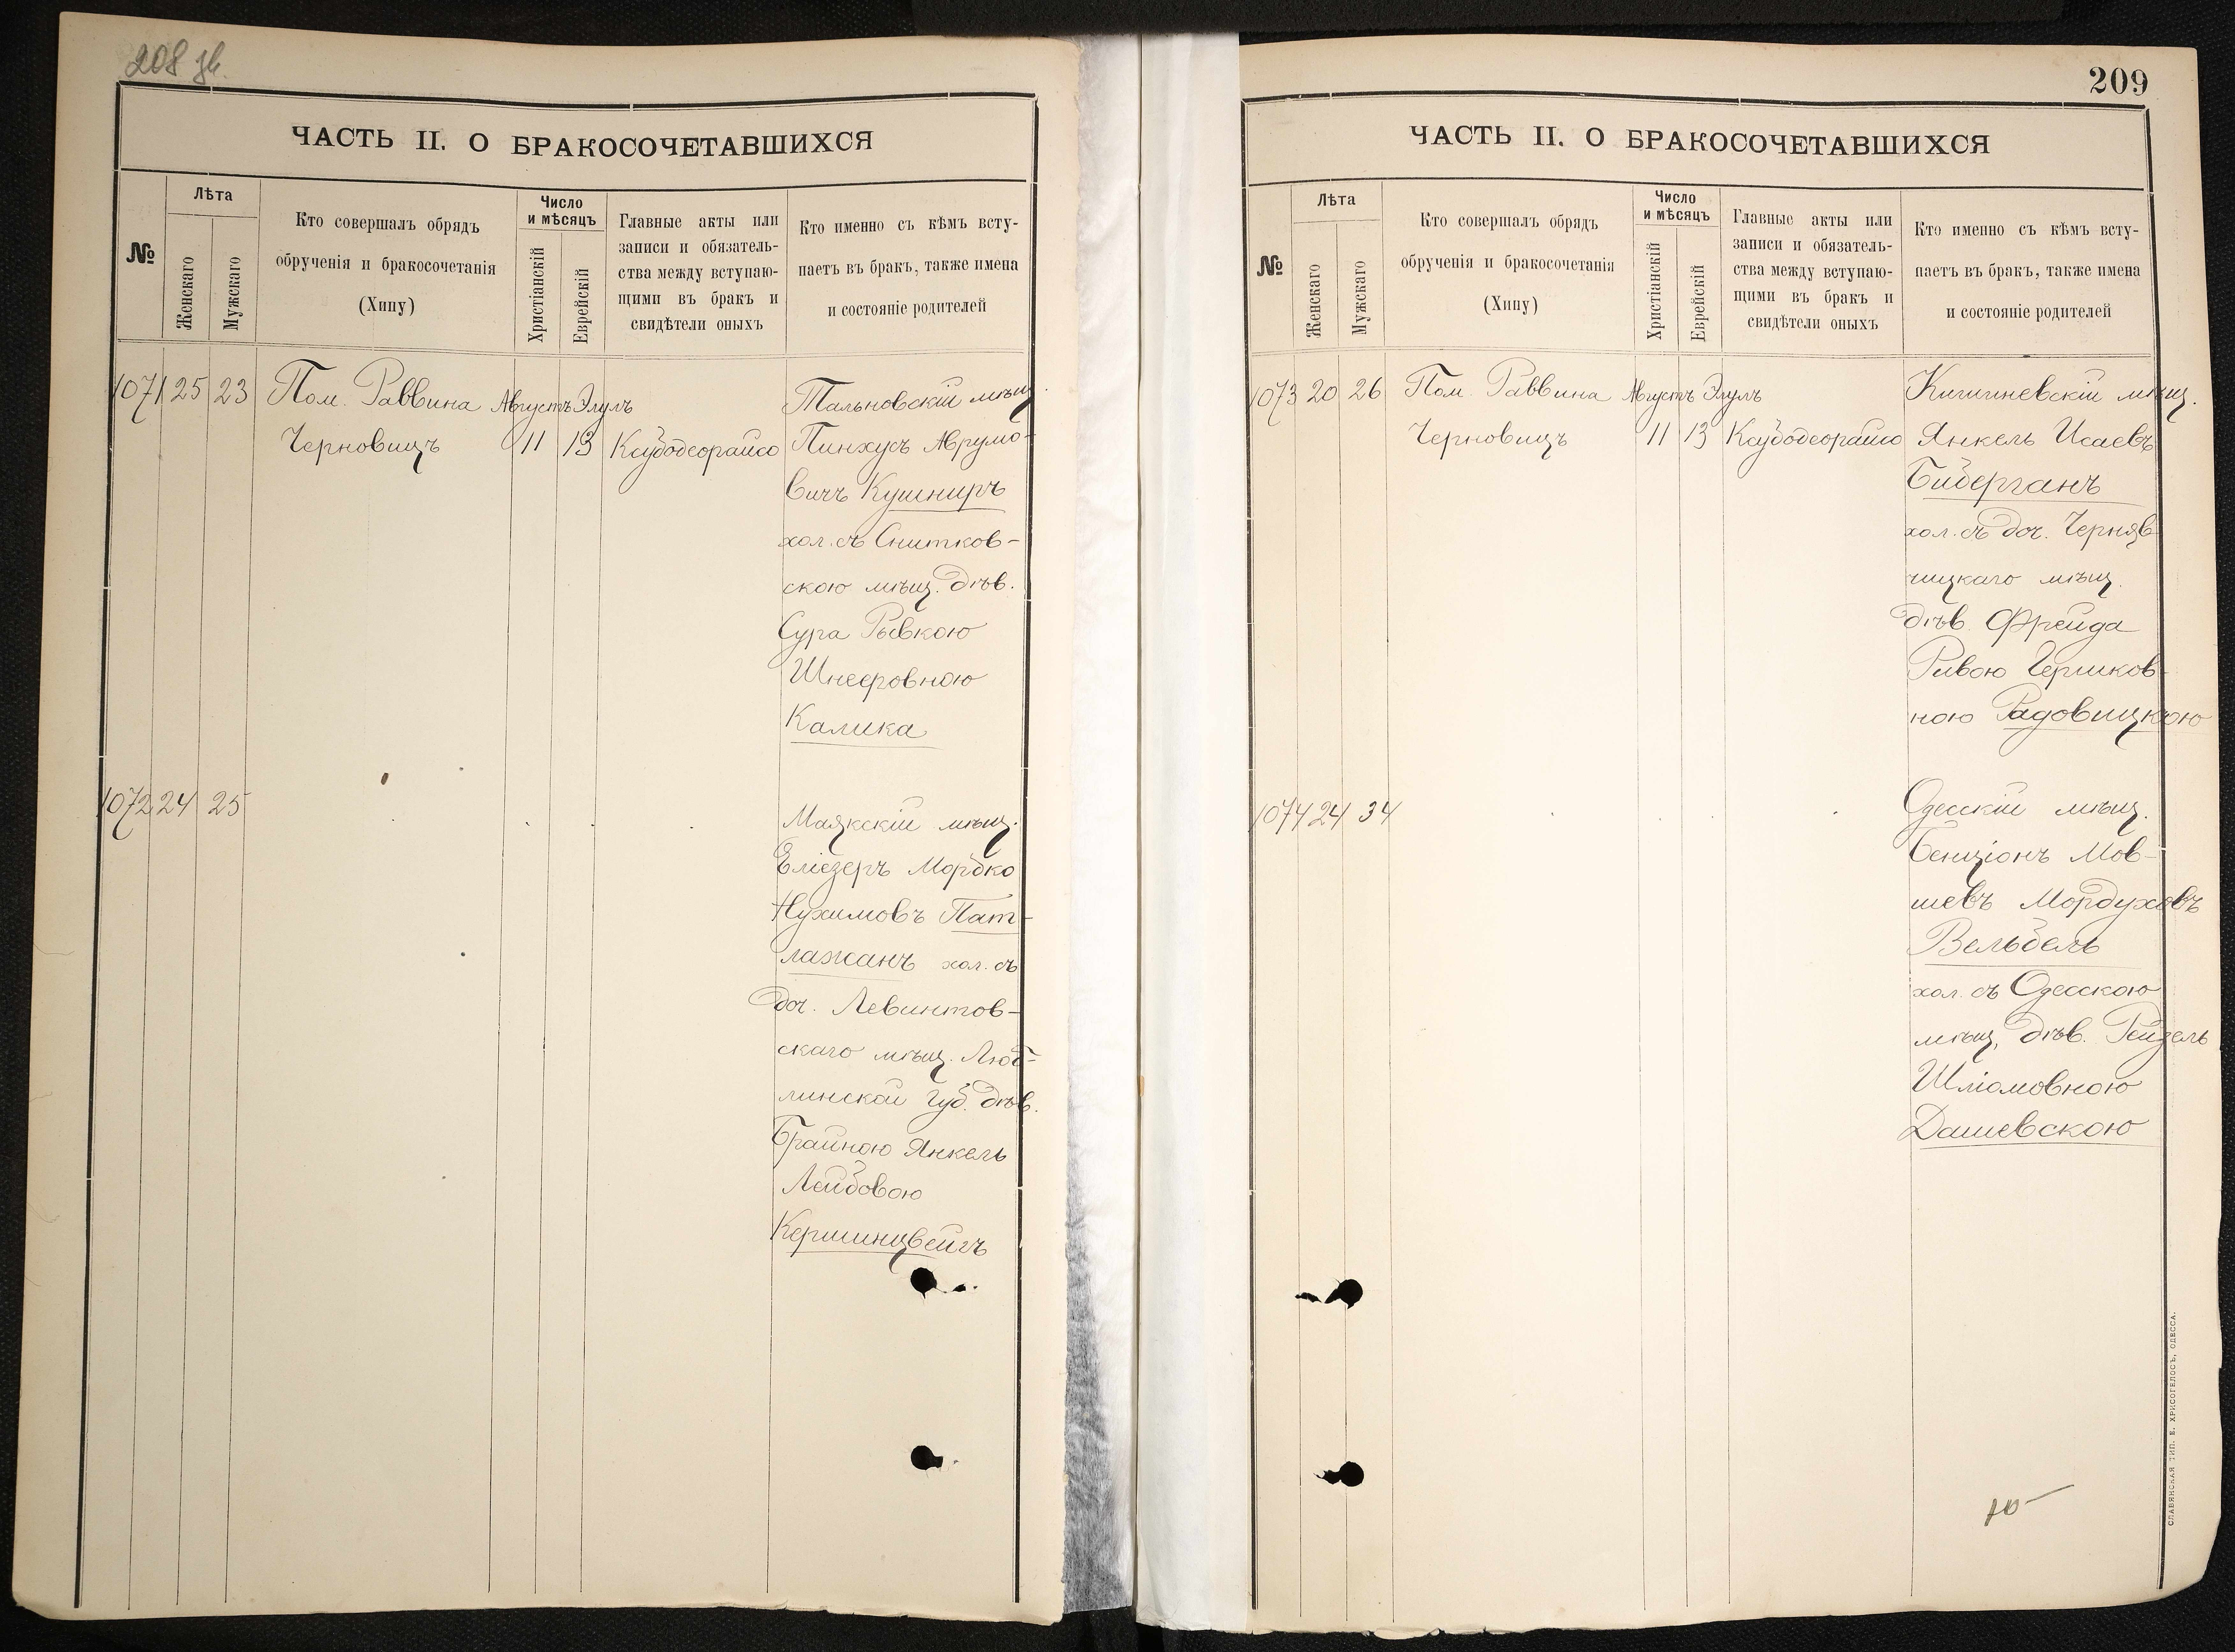 208 зв.
ЧАСТЬ II. О БРАКОСОЧЕТАВШИХСЯ
№
Лѣта
Женскаго
Мужскаго
Кто совершалъ обрядъ
обрученія и бракосочетанія
(Хипу)
Число
и мѣсяцъ
Христіанскій
Еврейскій
Главные акты или
записи и обязатель-
ства между вступаю-
щими въ бракъ и
свидѣтели оныхъ
Кто именно съ кѣмъ всту-
паетъ въ бракъ, также имена
и состояніе родителей
1071 25 23 Пом. Раввина Августъ Элулъ Тальновскій мѣщ.
Черновицъ 11 13 Ксубодеорайсо Пинхусъ Аврумо-
вичъ Кушниръ
хол. съ Снитков-
скою мѣщ. дѣв.
Сура Рывкою
Шнееровною
Калика
1072 24 25 Маякскій мѣщ.
Еліезеръ Мордко
Нухимовъ Пат-
лажанъ хол. съ
доч. Левинтов-
скаго мѣщ. Люб-
линской губ. дѣв.
Брайною Янкель
Лейбовою
Кершинцвейгъ
209
ЧАСТЬ II. О БРАКОСОЧЕТАВШИХСЯ
№
Лѣта
Женскаго
Мужскаго
Кто совершалъ обрядъ
обрученія и бракосочетанія
(Хипу)
Число
и мѣсяцъ
Христіанскій
Еврейскій
Главные акты или
записи и обязатель-
ства между вступаю-
щими въ бракъ и
свидѣтели оныхъ
Кто именно съ кѣмъ всту-
паетъ въ бракъ, также имена
и состояніе родителей
1073 20 26 Пом. Раввина Августъ Элулъ Кишиневскій мѣщ.
Черновицъ 11 13 Ксубодеорайсо Янкель Исаевъ
Биберганъ
хол. съ доч. Черняв-
чицкаго мѣщ.
дѣв. Фрейда
Ривою Гершков-
ною Радовицкою
1074 24 34 Одесскій мѣщ.
Бенціонъ Мов-
шевъ Мордуховъ
Вельбель
хол. съ Одесскою
мѣщ. дѣв. Рейзель
Шліомовною
Дашевскою
СЛАВЯНСКАЯ ТИП. Е. ХРИСОГЕЛОСЪ, ОДЕССА.